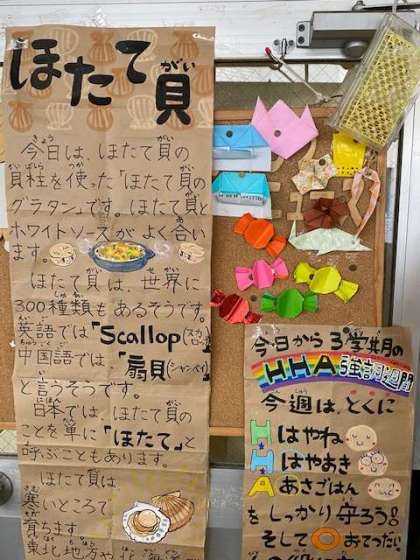 ほたて貝
今日は、ほたて貝の
貝柱を使った「ほたて貝の
グラタン」です。ほたて貝と
ホワイトソースがよく合い
ます。
ほたて貝は、世界に
300種類もあるそうです。
英語では「Scallop(スカロ
中国語では、「扇貝(シャンベイ)」
と言うそうです。
日本では、ほたて貝の
ことを単に「ほたて」と
呼ぶこともあります。
ほたて貝は
寒いところで
育ちます
東北地方や
今日から3学期の
HHA強調週間
今週は、とくに
Hはやね
Hはやおき
Aあさごはん
をしっかり守ろう!
そして〇おてつだい